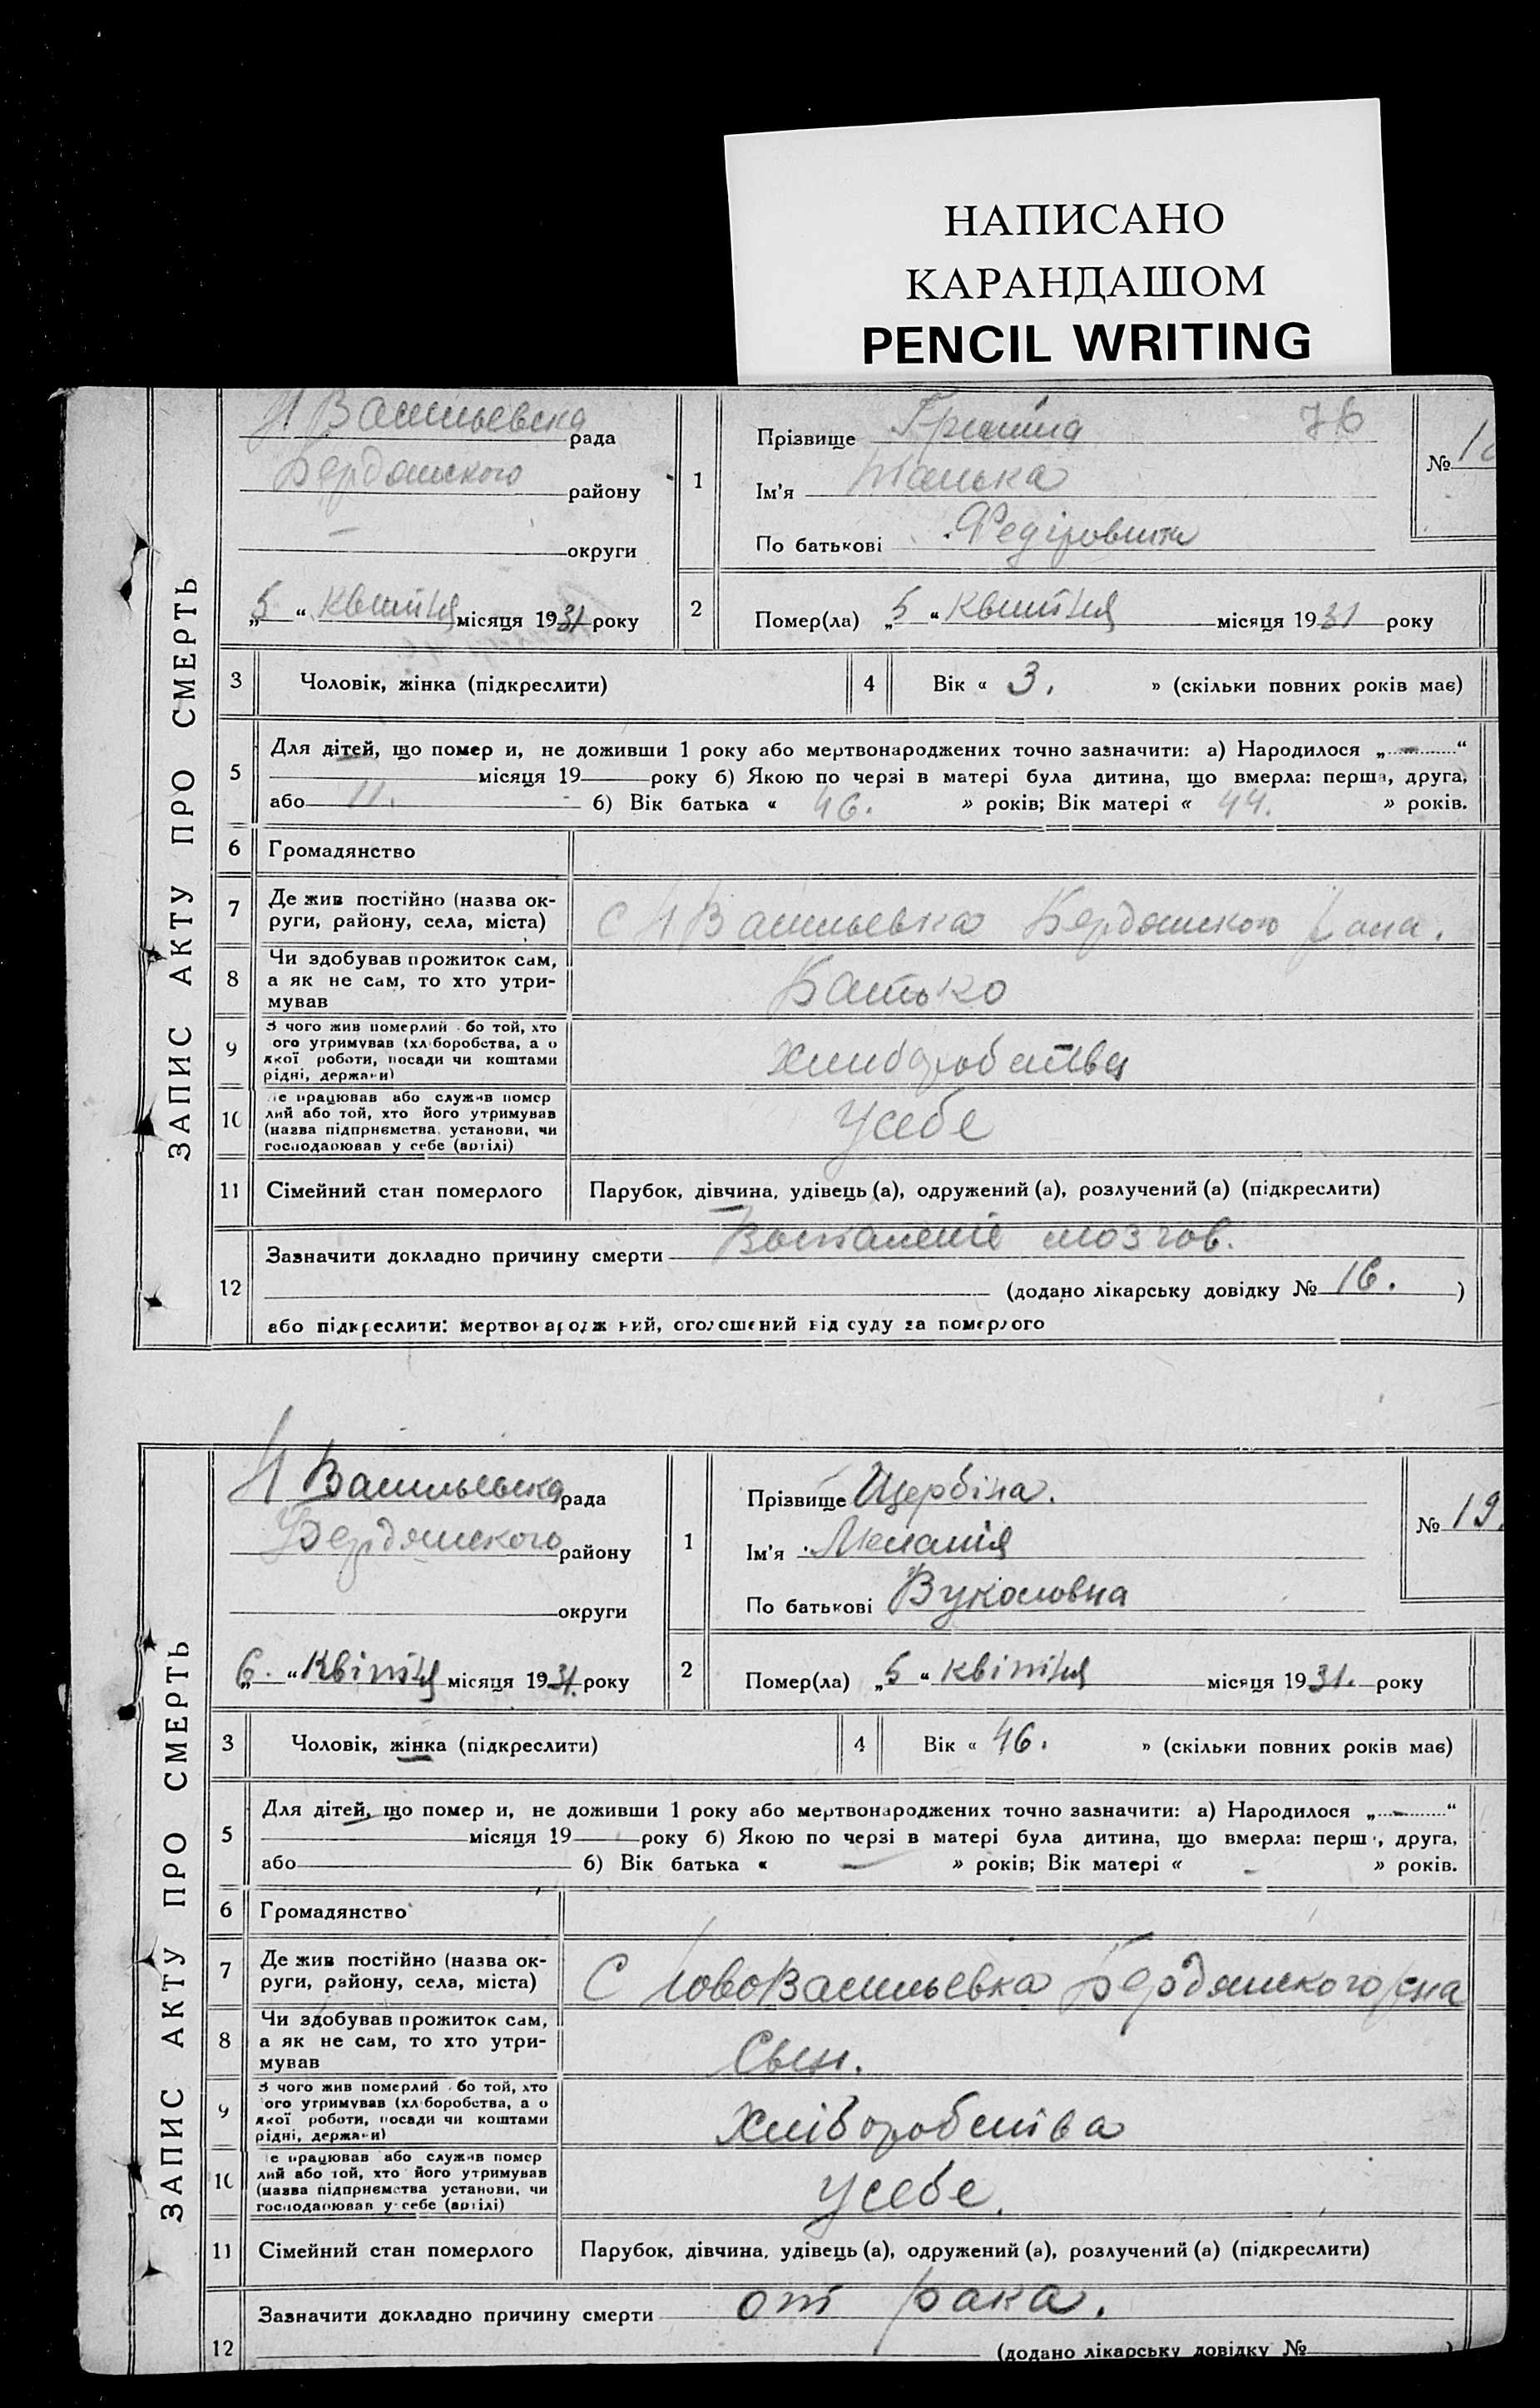 НАПИСАНО
КАРАНДАШОМ
PENCIL WRITING
ЗАПИС АКТУ ПРО СМЕРТЬ
Н Васильевска рада
Бердянского району
округи
„5“ Квитня місяця 1931 року
1
Прізвище
Ім'я Танька
По батькові Федіровитн
№ 1
2
Помер(ла) „5“ Квитня місяця 1931 року
3 Чоловік, жінка (підкреслити)
4 Вік « 3. » (скільки повних років має)
5
Для дітей, що помер и, не доживши 1 року або мертвонароджених точно зазначити: а) Народилося „ “
місяця 19 року б) Якою по черзі в матері була дитина, що вмерла: перша, друга,
або 11. б) Вік батька « 46. » років; Вік матері « 44. » років.
6 Громадянство
7
Де жив постійно (назва ок-
руги, району, села, міста)
С Н Васильевка Бердянского р она.
8
Чи здобував прожиток сам,
а як не сам, то хто утри-
мував
Батько
9
З чого жив померлий бо той, хто
ого утримував (хл боробства, а о
якої роботи, посади чи коштами
рідні, держави)
Хлиборобства
10
е працював або служив помер
лий або той, хто його утримував
(назва підприємства, установи, чи
господарював у себе (артілі)
Усебе
11 Сімейний стан померлого
Парубок, дівчина, удівець (а), одружений (а), розлучений (а) (підкреслити)
12
Зазначити докладно причину смерти Воспаление мозгов.
(додано лікарську довідку № 16. )
або підкреслити: мертвонароджений, оголошений від суду за померлого
ЗАПИС АКТУ ПРО СМЕРТЬ
Н Васильевска рада
Бердянского району
округи
„6.“ Квітня місяця 1931. року
1
Прізвище Щербіна.
Ім'я Меланія
По батькові Вукословна
№ 19.
2
Помер(ла) „5“ квітня місяця 1931. року
3 Чоловік, жінка (підкреслити)
4 Вік « 46. » (скільки повних років має)
5
Для дітей, що помер и, не доживши 1 року або мертвонароджених точно зазначити: а) Народилося „ “
місяця 19 року б) Якою по черзі в матері була дитина, що вмерла: перш , друга,
або б) Вік батька « — » років; Вік матері « - » років.
6 Громадянство
7
Де жив постійно (назва ок-
руги, району, села, міста)
С НовоВасильевка Бердянского р-на
8
Чи здобував прожиток сам,
а як не сам, то хто утри-
мував
Сын.
9
З чого жив померлий бо той, хто
ого утримував (хл боробства, а о
якої роботи, посади чи коштами
рідні, держави)
Хліборобства
10
е працював або служив помер
лий або той, хто його утримував
(назва підприємства установи, чи
господарював у себе (артілі)
Усебе.
11 Сімейний стан померлого
Парубок, дівчина, удівець (а), одружений (а), розлучений (а) (підкреслити)
12
Зазначити докладно причину смерти от рака.
(додано лікарську довідку № )